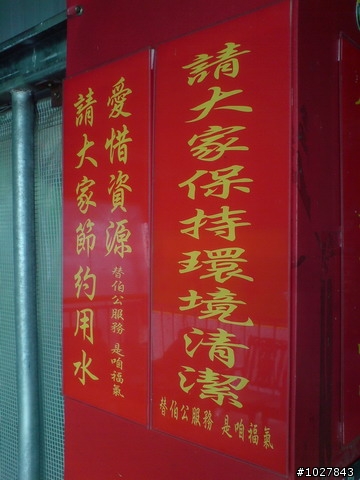 請大家保持環境清潔
替伯公服務 是咱福氣
愛惜資源
替伯公服務 是咱福氣
請大家節約用水
#1027843